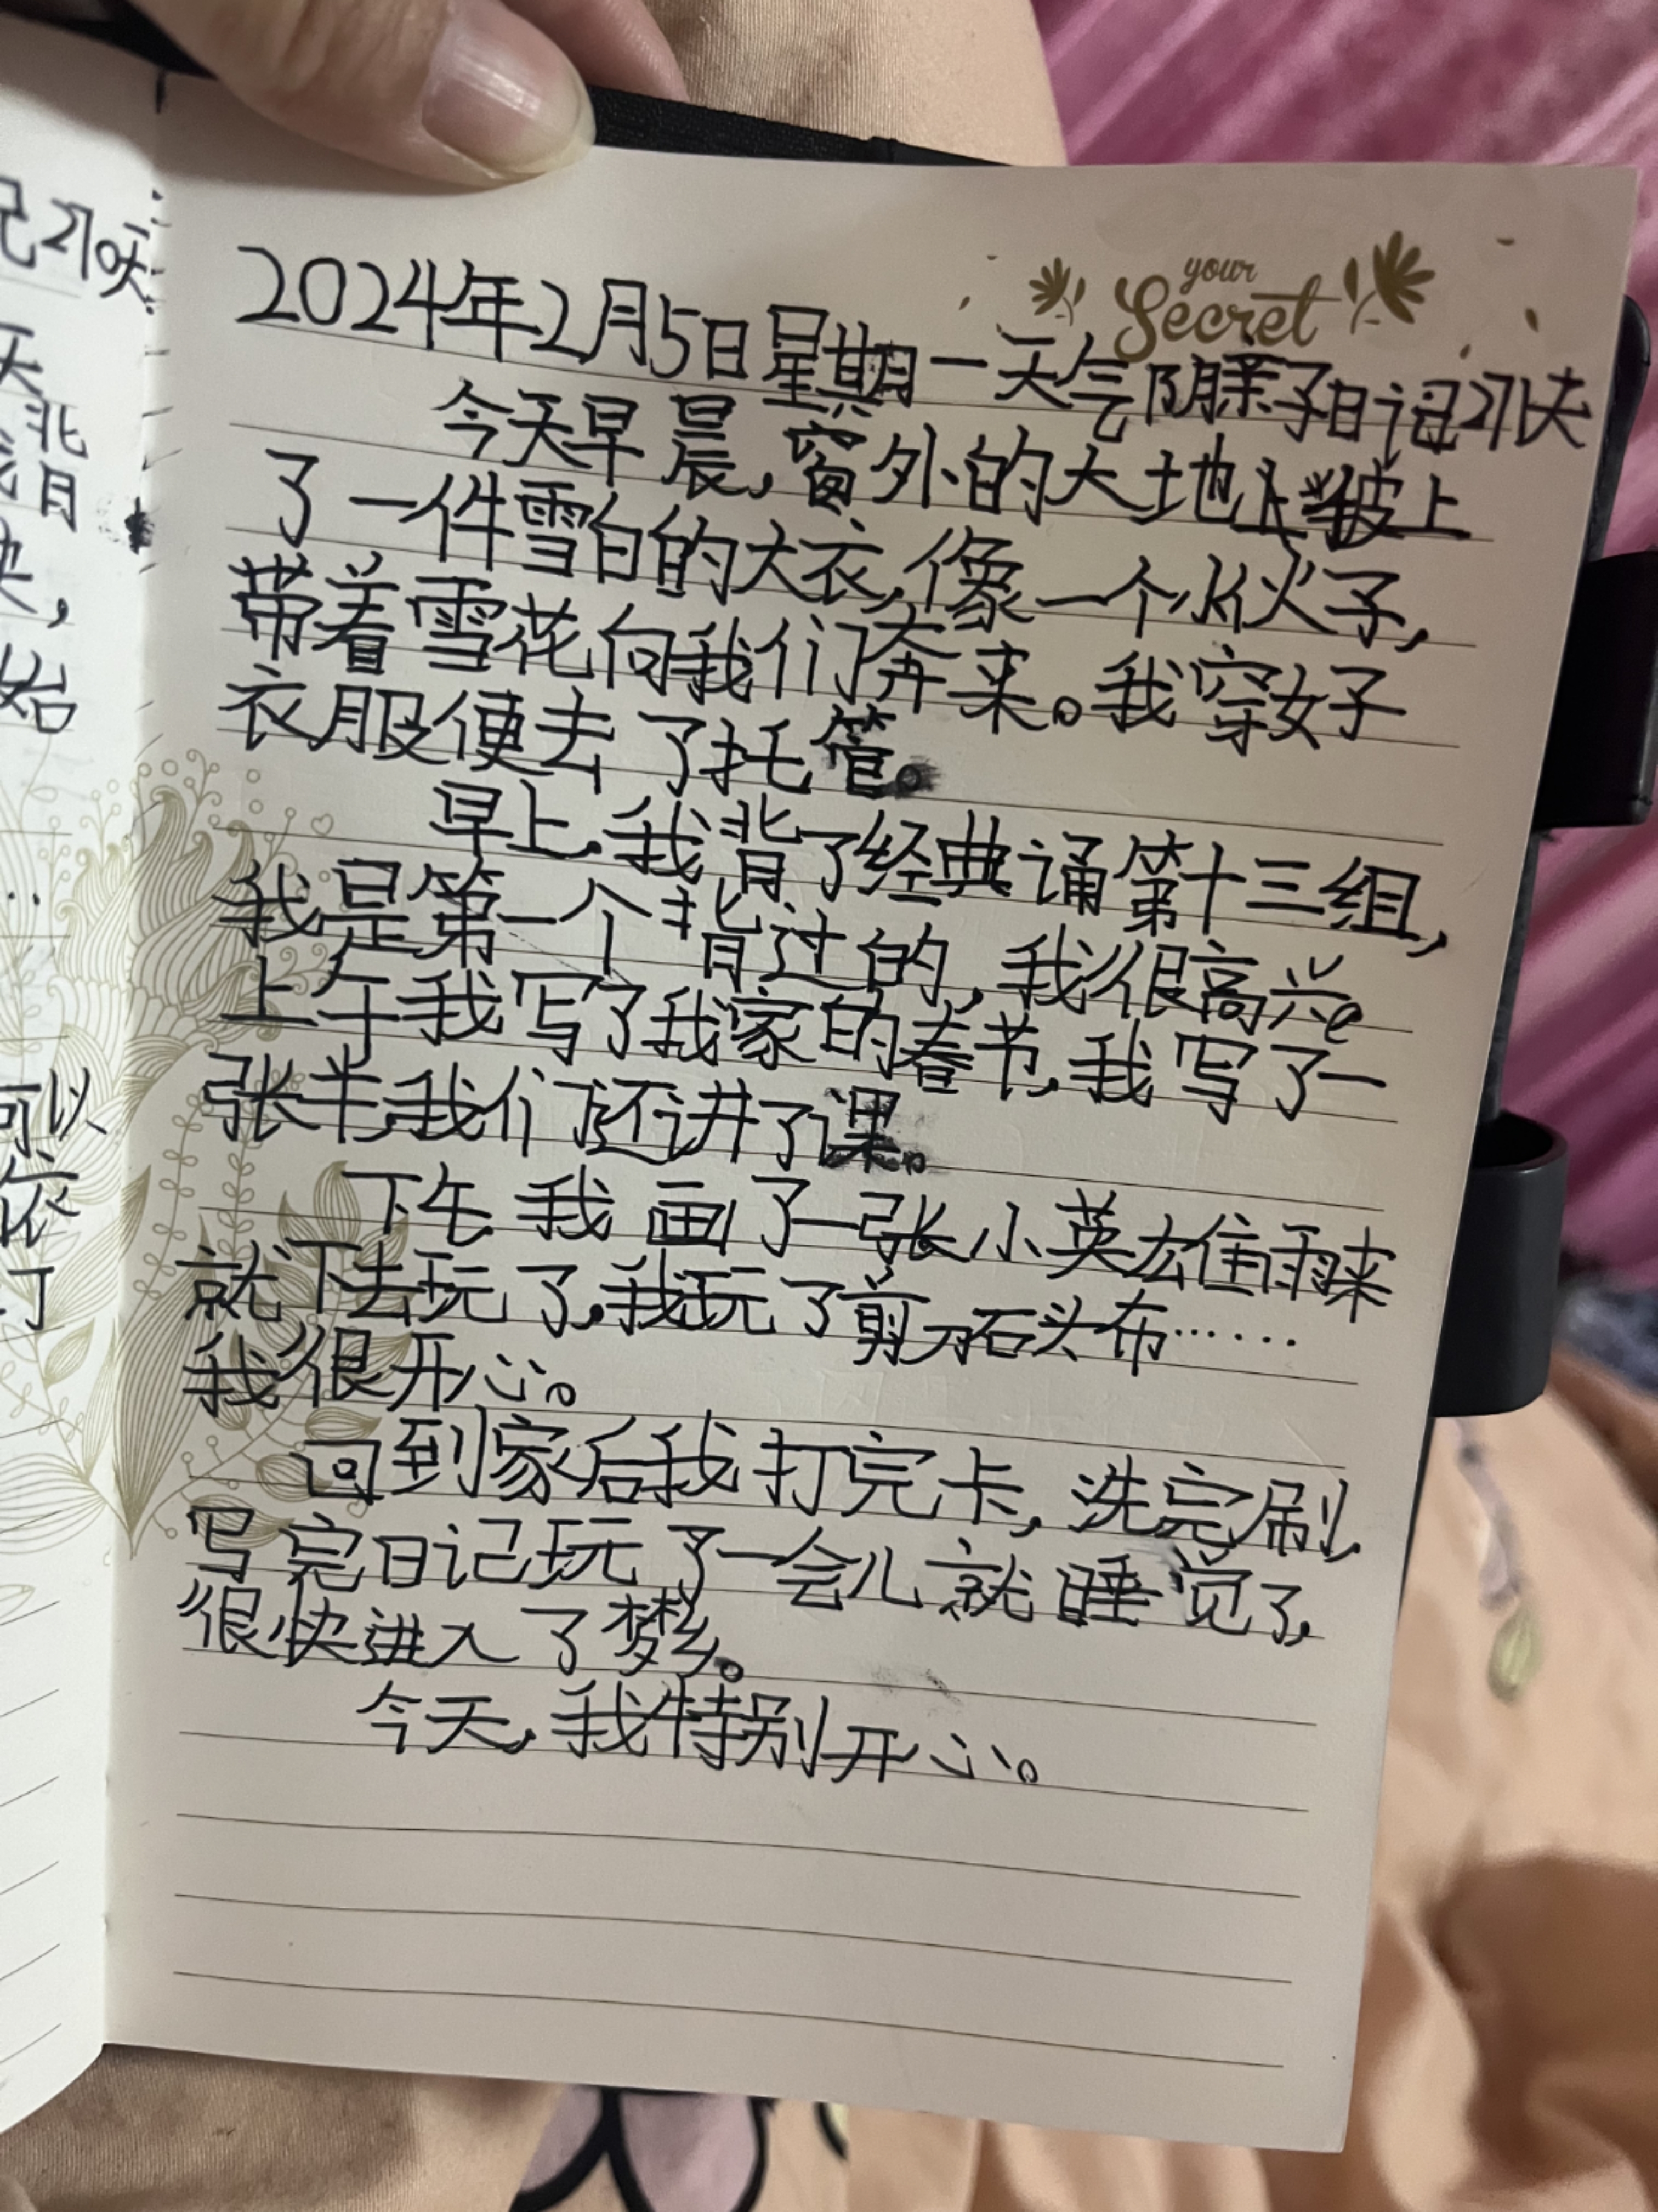 记270天
天
背
快，
始
…
可以
依
了
your
Secret
2024年2月5日星期一天气阴亲子日记271天
今天早晨，窗外的大地上披上
了一件雪白的大衣，像一个小伙子，
带着雪花向我们奔来。我穿好
衣服便去了托管。
早上，我背了经典诵第十三组，
我是第一个背过的，我很高兴。
上午我写了我家的春节，我写了一
张半，我们还讲了课。
下午，我画了一张小英雄雨来
就下去玩了，我玩了剪刀石头布……
我很开心。
回到家后我打完卡，洗完刷，
写完日记玩了一会儿就睡觉了，
很快进入了梦乡。
今天，我特别开心。